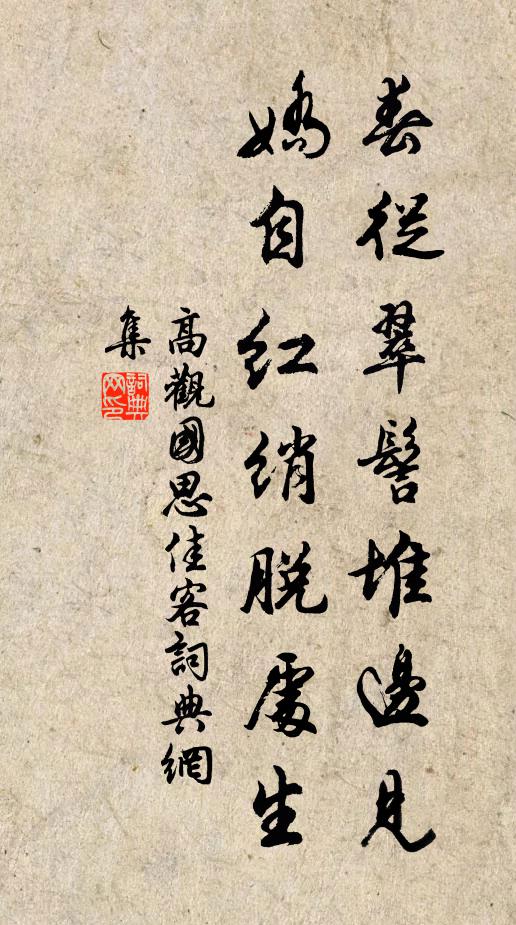 春從翠髻堆邊見
嬌自紅綃脫處生
高觀國思佳客詞典網
集
詞典网印